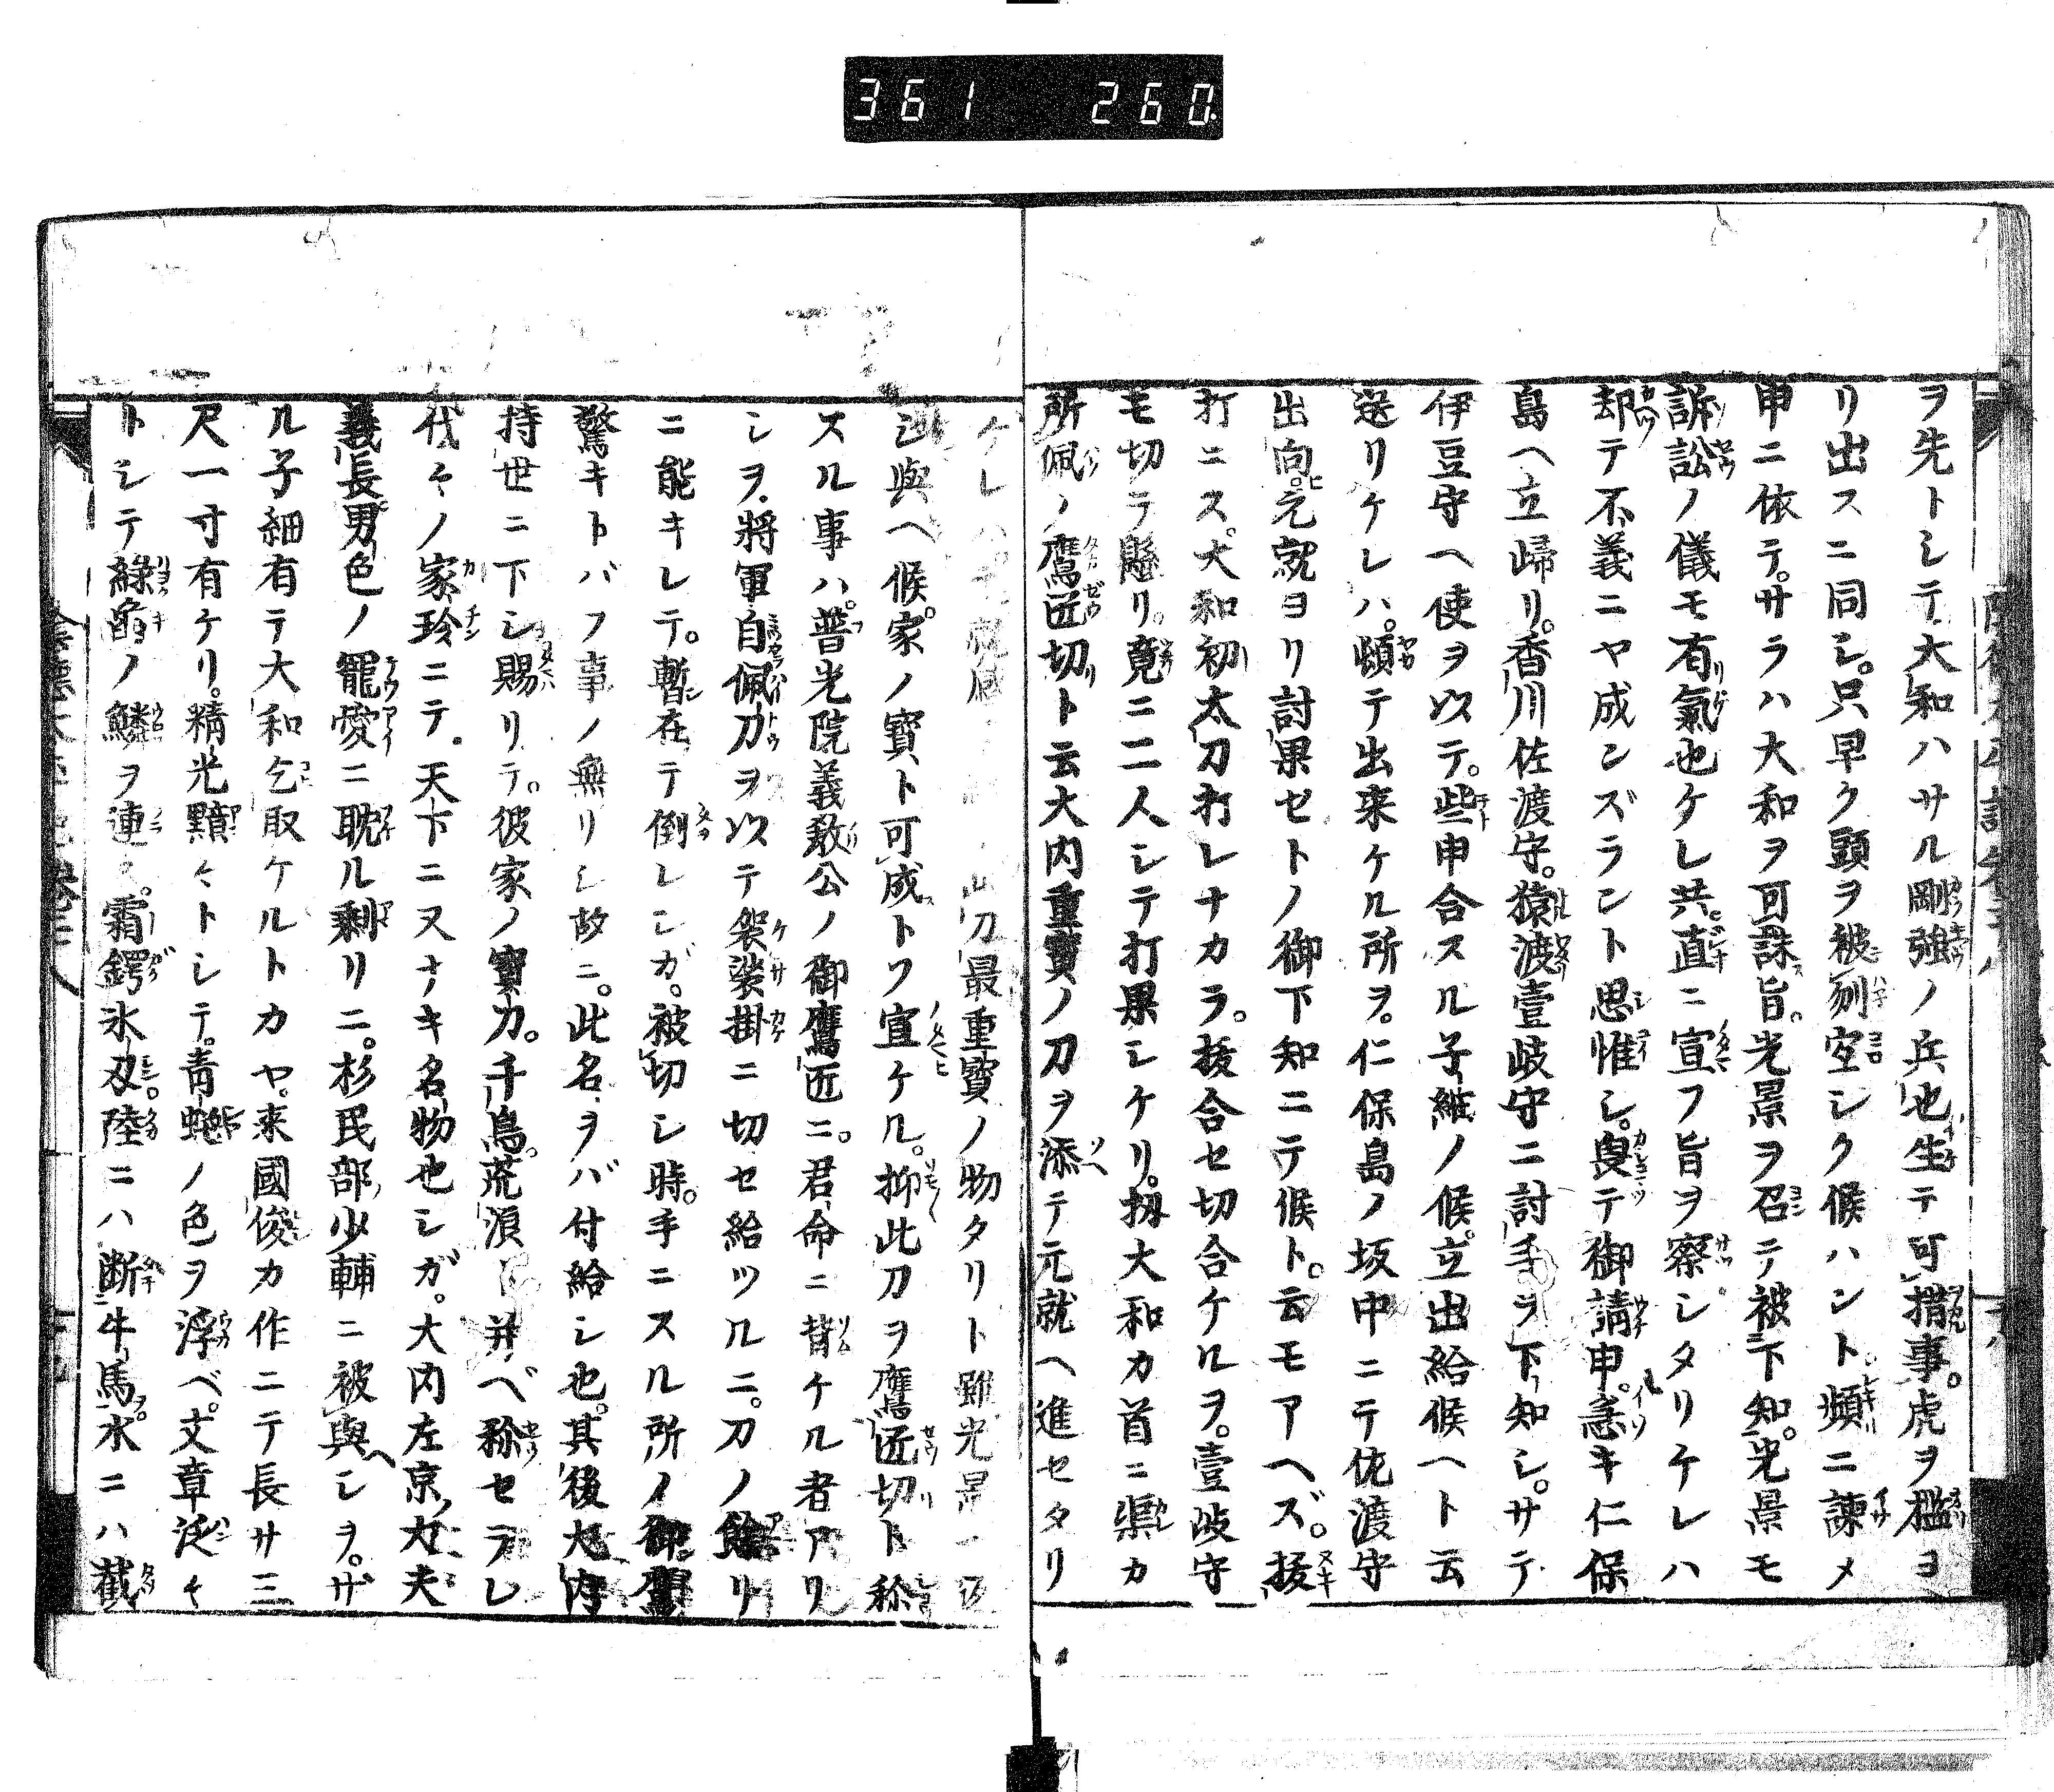 361 260
ヲ先トシテ大和ハサル剛強ノ兵也生テ可措事。虎ヲ檻ヨ
リ出スニ同シ。只早ク頭ヲ被刎宜シク候ハントレ頻ニ諫メ
申ニ依テ。サラハ大和ヲ可誅旨。光景ヲ召テ被下知。光景モ
訴訟ノ儀モ有氣也ケレ共。直ニ宣フ旨ヲ察シタリケレハ
却テ不義ニヤ成ンズラント思惟シ。畏テ御請申。急キ仁保
島ヘ立歸リ。香川佐渡守。猿渡壹岐守ニ討手ヲ下知シ。サテ
伊豆守ヘ使ヲ以テ。些申合スル子細ノ候。立出給候ヘト云
送リケレハ。頓テ出来ケル所ヲ。仁保島ノ坂中ニテ佐渡守
出向。元就ヨリ討果セトノ御下知ニテ候ト。云モアヘズ。抜
打ニス。大和初太刀打レナカラ。抜合セ切合ケルヲ。壹岐守
モ切テ懸リ。竟ニ二人シテ打果シケリ。扨大和カ首ニ渠カ
所佩ノ鷹匠切ト云大内重寳ノ刀ヲ添テ元就ヘ進セタリ
ケレハ。 刀最重寳ノ物タリト雖光景
シ與ヘ候。家ノ寳ト可成トソ宣ケル。抑此刀ヲ鷹匠切ト称
スル事ハ。普光院義教公ノ御鷹匠ニ。君命ニ背ケル者アリ
シヲ。將軍自佩刀ヲ以テ袈裟掛ニ切セ給ツルニ。刀ノ餘リ
ニ能キレテ。暫在テ倒レシガ。被切シ時。手ニスル所ノ御鷹
驚キトバフ事ノ無リシ故ニ。此名ヲバ付給シ也。其後大内
持世ニ下シ賜リテ。彼家ノ寳刀。千鳥。荒浪ト并ベ称セラレ
代々ノ家珍ニテ。天下ニ又ナキ名物也シガ。大内左京大夫
義長男色ノ寵愛ニ耽ル剰リニ。杉民部少輔ニ被與シヲ。サ
ル子細有テ大和乞取ケルトカヤ。来國俊カ作ニテ長サ三
尺一寸有ケリ。精光黯々トシテ。青蛇ノ色ヲ浮ベ。文章泛々
トシテ綠龜ノ鱗ヲ連ヌ。霜鍔氷刄。陸ニハ断牛馬。水ニハ截